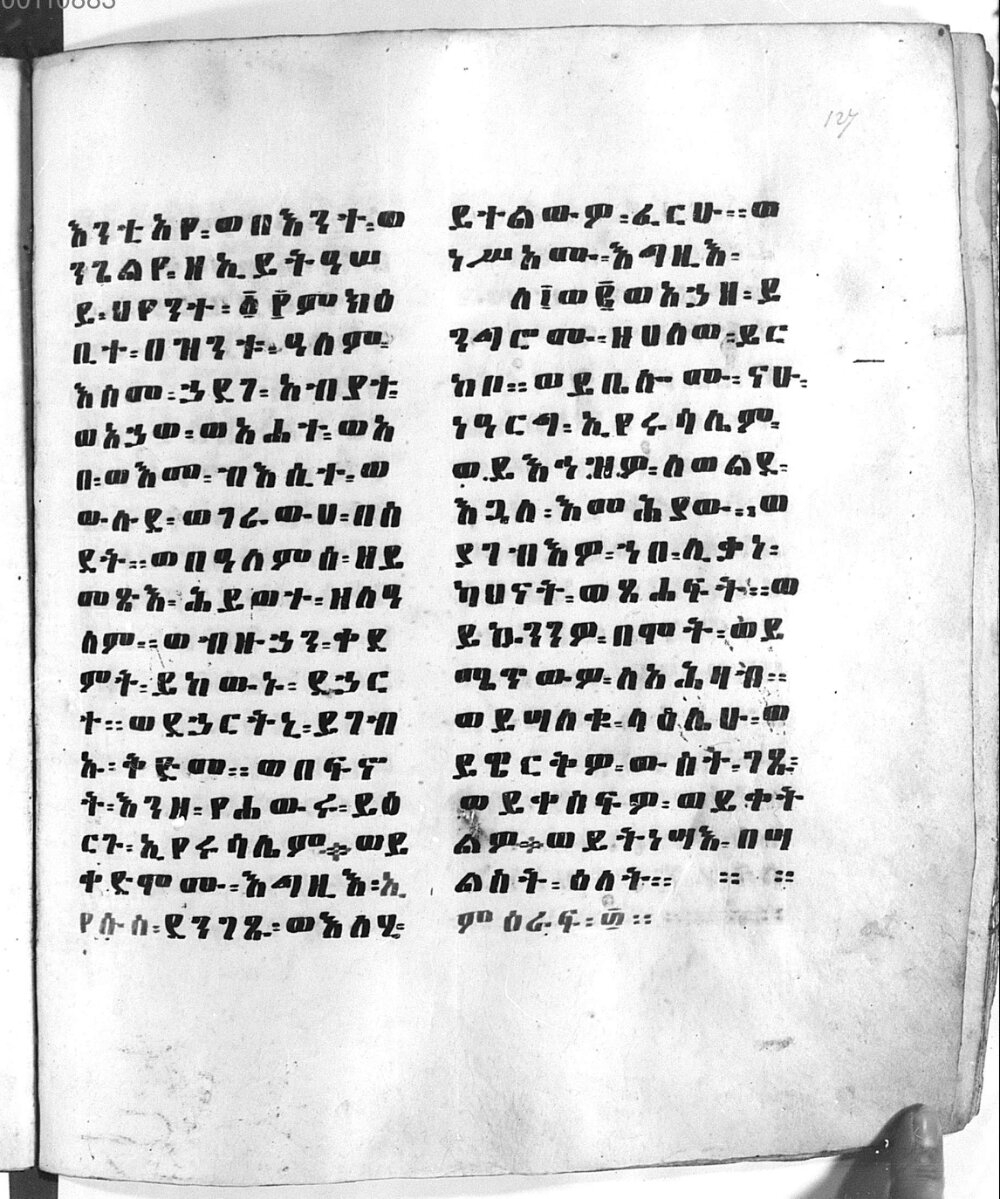 00110883
127
እንቲአየ፡ወበእንተ፡ወ
ንጌልየ፡ዘኢይትዓሠ
ይ፡ህየንተ፡፩፻ምክዕ
ቢተ፡በዝንቱ፡ዓለም፡
እስመ፡ኃደገ፡አብያተ፡
ወአኃው፡ወአሐተ፡ወአ
በ፡ወእመ፡ብእሲተ፡ወ
ውሉደ፡ወገራውሀ፡በስ
ደት፡፡ወበዓለምሰ፡ዘይ
መጽእ፡ሕይወተ፡ዘለዓ
ለም፡፡ወብዙኃን፡ቀደ
ምት፡ይከውኑ፡ደኃር
ተ፡፡ወደኃርትኒ፡ይገብ
ኡ፡ቅድመ፡፡ወበፍኖ
ት፡እንዘ፡የሐውሩ፡ይዕ
ርጉ፡ኢየሩሳሌም፡ወይ
ቀድሞሙ፡እግዚእ፡ኢ
የሱስ፡ደንገጹ፡ወእለሂ፡
ይተልውዎ፡ፈርሁ፡፡ወ
ነሥአሙ፡እግዚእ፡
ለ፲ወ፪ወአኃዘ፡ይ
ንግሮሙ፡ዘሀለወ፡ይር
ከቦ፡፡ወይቤሎሙ፡ናሁ፡
ነዓርግ፡ኢየሩሳሌም፡
ወይእኅዝዎ፡ለወልደ፡
እጓለ፡እመሕያው፡፡ወ
ያገብእዎ፡ኀበ፡ሊቃነ፡
ካህናት፡ወጸሐፍት፡፡ወ
ይኴንንዎ፡በሞት፡ወይ
ሜጥውዎ፡ለአሕዛብ፡፡
ወይሣለቁ፡ላዕሌሁ፡ወ
ይዌርቅዎ፡ውስተ፡ገጹ፡
ወይቀስፍዎ፡ወይቀት
ልዎ፡ወይትነሣእ፡በሣ
ልስት፡ዕለት፡፡ ፡፡ ፡፡
ምዕራፍ፡